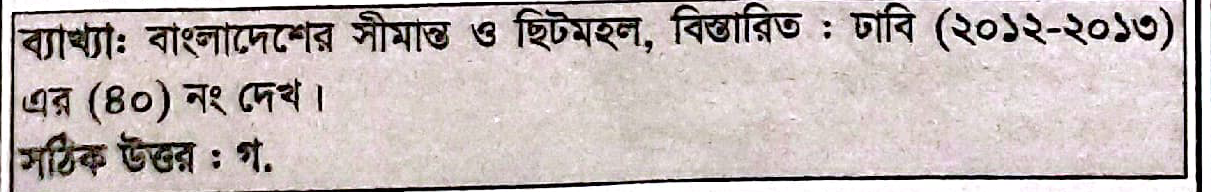 ব্যাখ্যা: বাংলাদেশের সীমান্ত ও ছিটমহল, বিস্তারিত : ঢাবি (২০১২-২০১৩)
এর (৪০) নং দেখ।
সঠিক উত্তর : গ.